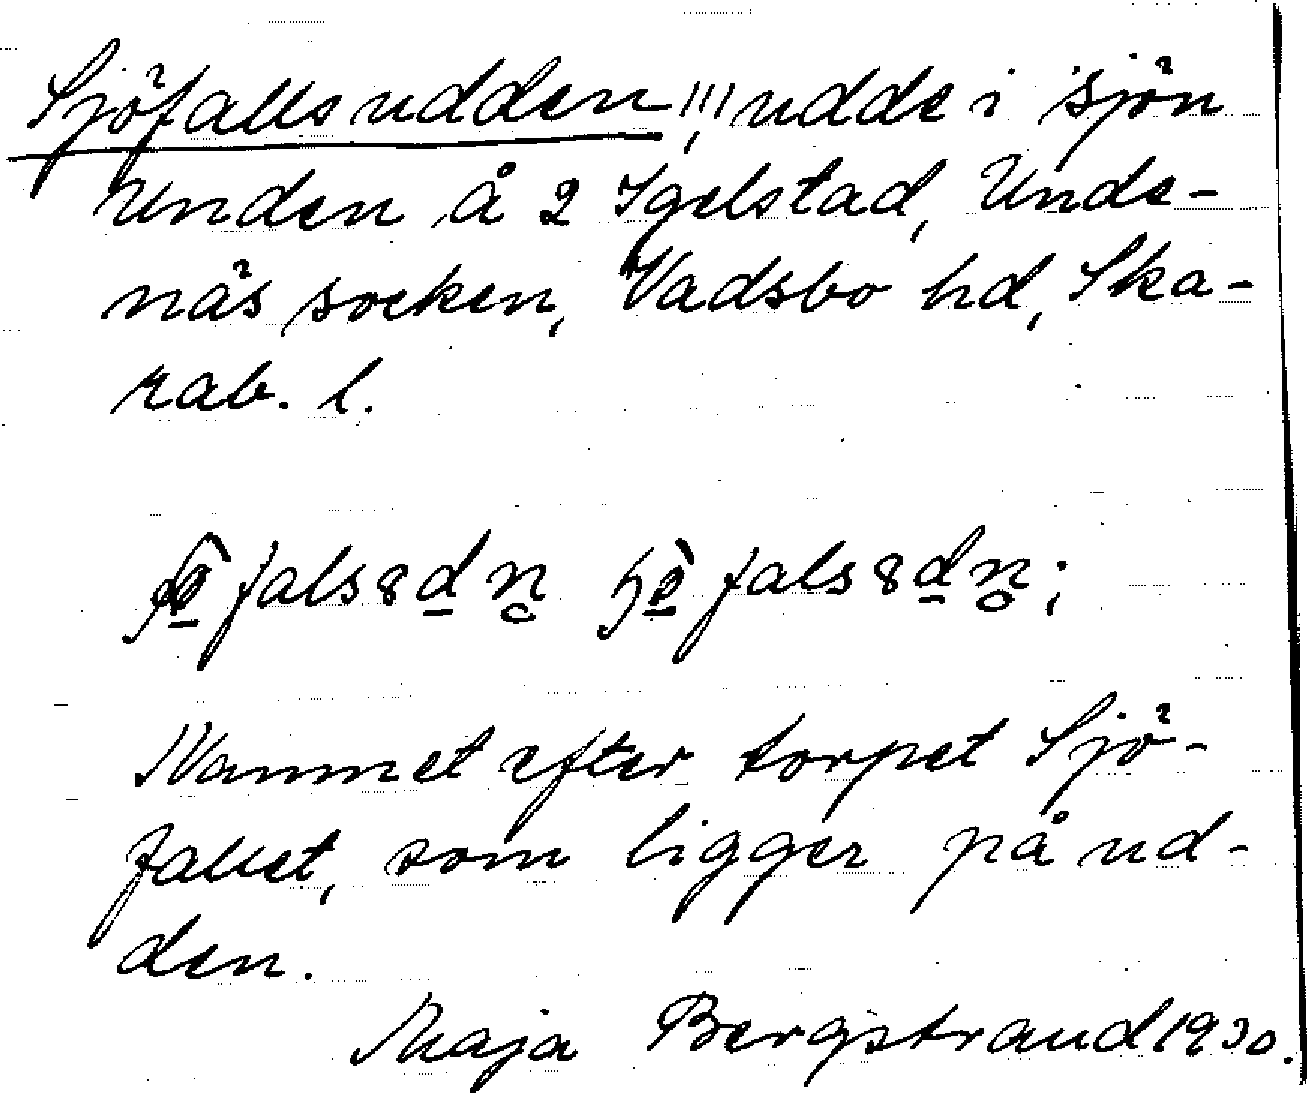 Sjöfallsudden !!! udde i sjön
Unden å 2 Igelstad, Unde-
näs socken, Vadsbo hd, Ska-
rab. l.
Namnet efter torpet Sjö-
fallet, som ligger på ud-
den.
Maja Bergstrand 1930.